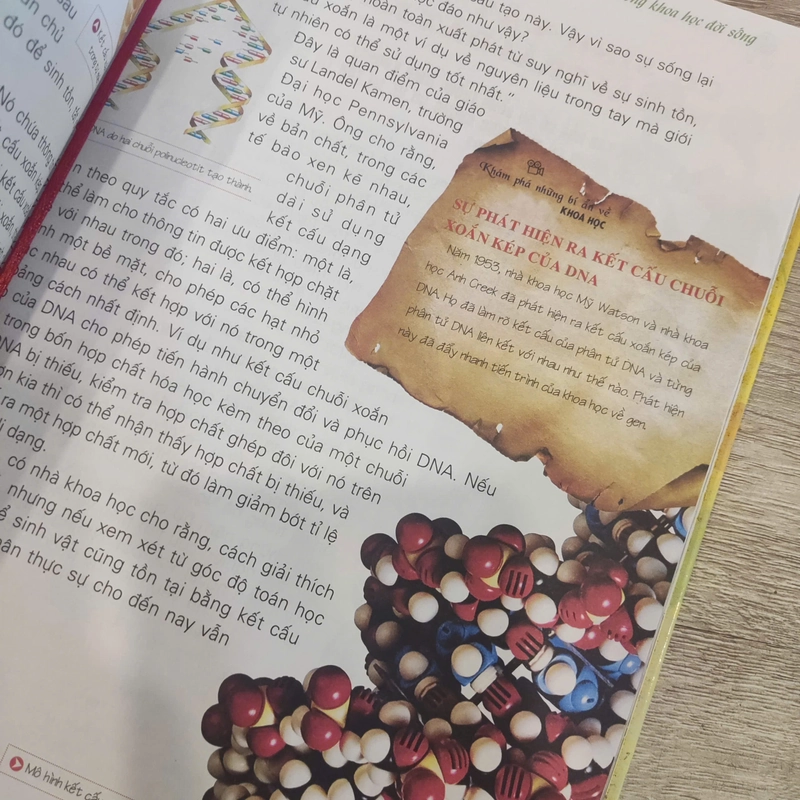 khoa học đời sống
sau
ản chủ
đó để sinh tồn,
Nó chứa thông
cấu xoắn
kết cấu
DNA do hai chuỗi polinucleotit tạo thành
tạo này. Vậy vì sao sự sống lại
đáo như vậy?
hoàn toàn xuất phát từ suy nghĩ về sự sinh tồn,
xoắn là một ví dụ về nguyên liệu trong tay mà giới
tự nhiên có thể sử dụng tốt nhất."
Đây là quan điểm của giáo
sư Landel Kamen, trường
Đại học Pennsylvania
của Mỹ. Ông cho rằng,
về bản chất, trong các
tế bào xen kẽ nhau,
chuỗi phân tử
dài sử dụng
kết cấu dạng
theo quy tắc có hai ưu điểm: một là,
thể làm cho thông tin được kết hợp chặt
với nhau trong đó; hai là, có thể hình
một bề mặt, cho phép các hạt nhỏ
nhau có thể kết hợp với nó trong một
cách nhất định. Ví dụ như kết cấu chuỗi xoắn
của DNA cho phép tiến hành chuyển đổi và phục hồi DNA. Nếu
trong bốn hợp chất hóa học kèm theo của một chuỗi
bị thiếu, kiểm tra hợp chất ghép đôi với nó trên
kia thì có thể nhận thấy hợp chất bị thiếu, và
ra một hợp chất mới, từ đó làm giảm bớt tỉ lệ
dạng.
có nhà khoa học cho rằng, cách giải thích
nhưng nếu xem xét từ góc độ toán học
sinh vật cũng tồn tại bằng kết cấu
thực sự cho đến nay vẫn
Khám phá những bí ẩn về
KHOA HỌC
SỰ PHÁT HIỆN RA KẾT CẤU CHUỖI
XOẮN KÉP CỦA DNA
Năm 1953, nhà khoa học Mỹ Watson và nhà khoa
học Anh Creek đã phát hiện ra kết cấu xoắn kép của
DNA. Họ đã làm rõ kết cấu của phân tử DNA và từng
phân tử DNA liên kết với nhau như thế nào. Phát hiện
này đã đẩy nhanh tiến trình của khoa học về gen.
Mô hình kết cấ